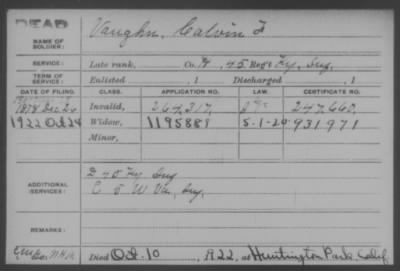 DEAD
NAME OF SOLDIER: Vaughn, Calvin F
SERVICE: Late rank, Co. H, 45 Reg't Ky. Inf.
TERM OF SERVICE: Enlisted , 1 Discharged , 1
DATE OF FILING. CLASS. APPLICATION NO. LAW. CERTIFICATE NO.
1878 Dec 26 Invalid, 264,317, 247,660,
1922 Oct 24 Widow, 1195889 5-1-20 931971
Minor,
ADDITIONAL SERVICES: D 45 Ky Inf
C 5 W Va, Inf,
REMARKS:
Died Oct. 10, 1922, at Huntington Park, Calif.